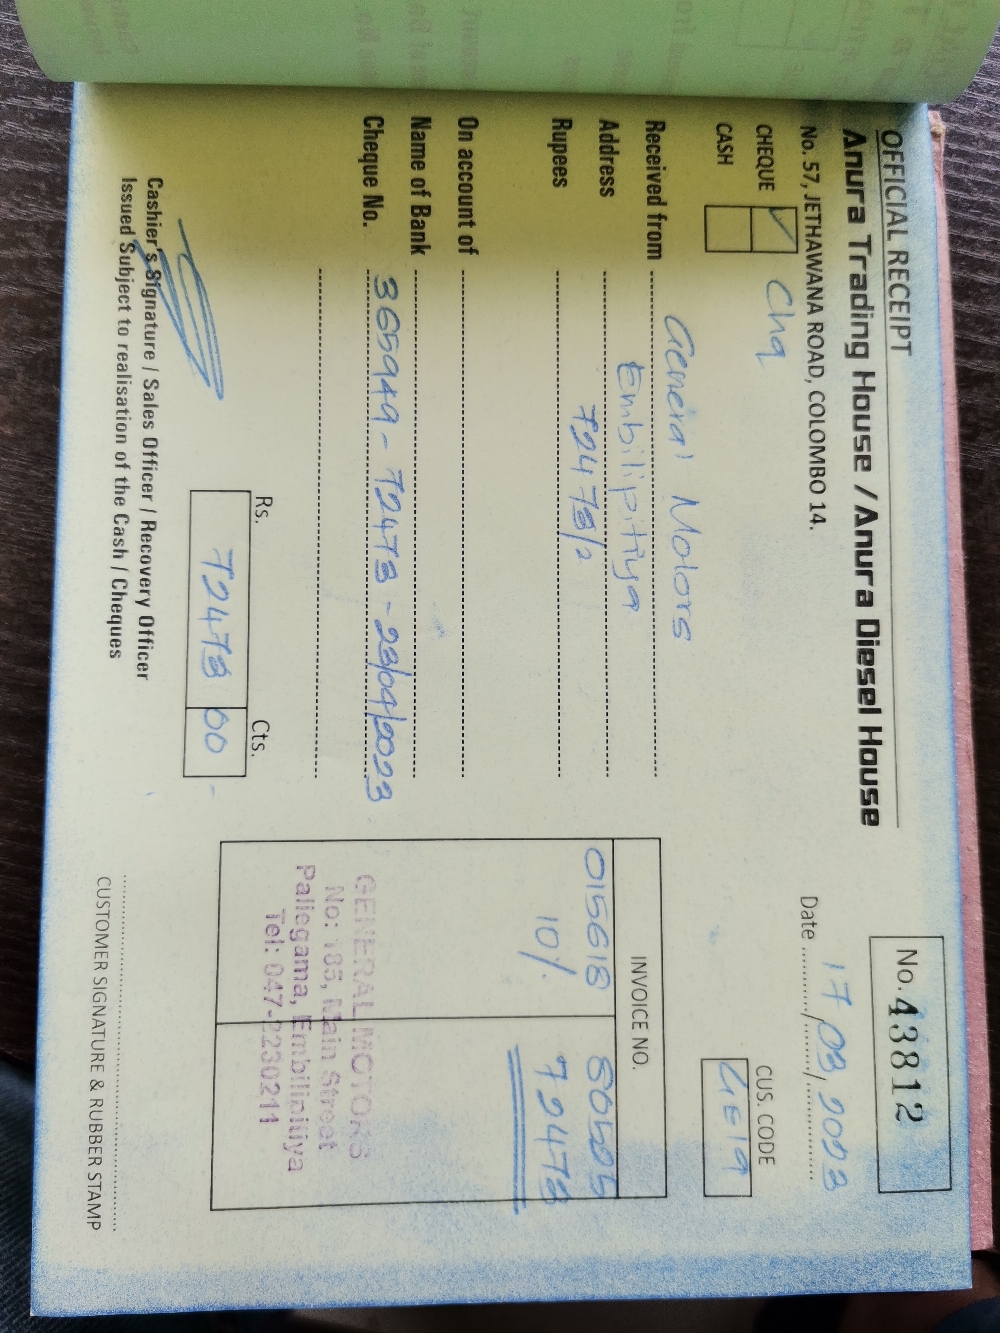 OFFICIAL RECEIPT
Anura Trading House / Anura Diesel House
No. 57, JETHAWANA ROAD, COLOMBO 14.
No. 43812
Date 17/03/2023
CHEQUE ✓ Chq
CASH
CUS. CODE
GE19
Received from General Motors
Address Embilipitiya
Rupees 72473/=
On account of
Name of Bank
Cheque No. 365949 - 72473 - 23/04/2023
INVOICE NO.
015618 80525
10% 72473
GENERAL MOTORS
No: 185, Main Street
Pallegama, Embilipitiya
Tel: 047-2230211
Rs. Cts.
72473 00
Cashier's Signature / Sales Officer / Recovery Officer
Issued Subject to realisation of the Cash / Cheques
CUSTOMER SIGNATURE & RUBBER STAMP